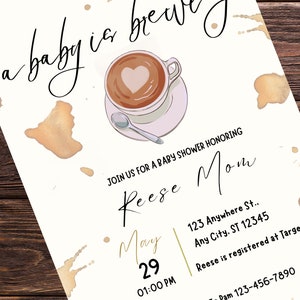 a baby is brewing
JOIN US FOR A BABY SHOWER HONORING
Reese Mom
May
29
01:00 PM
123 Anywhere St..
Any City, ST 12345
Reese is registered at Targe
Pam 123-456-7890